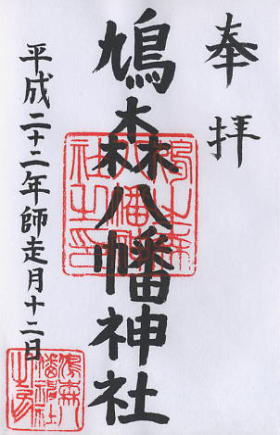 奉拝
鳩森八幡神社
平成二十二年師走月十二日